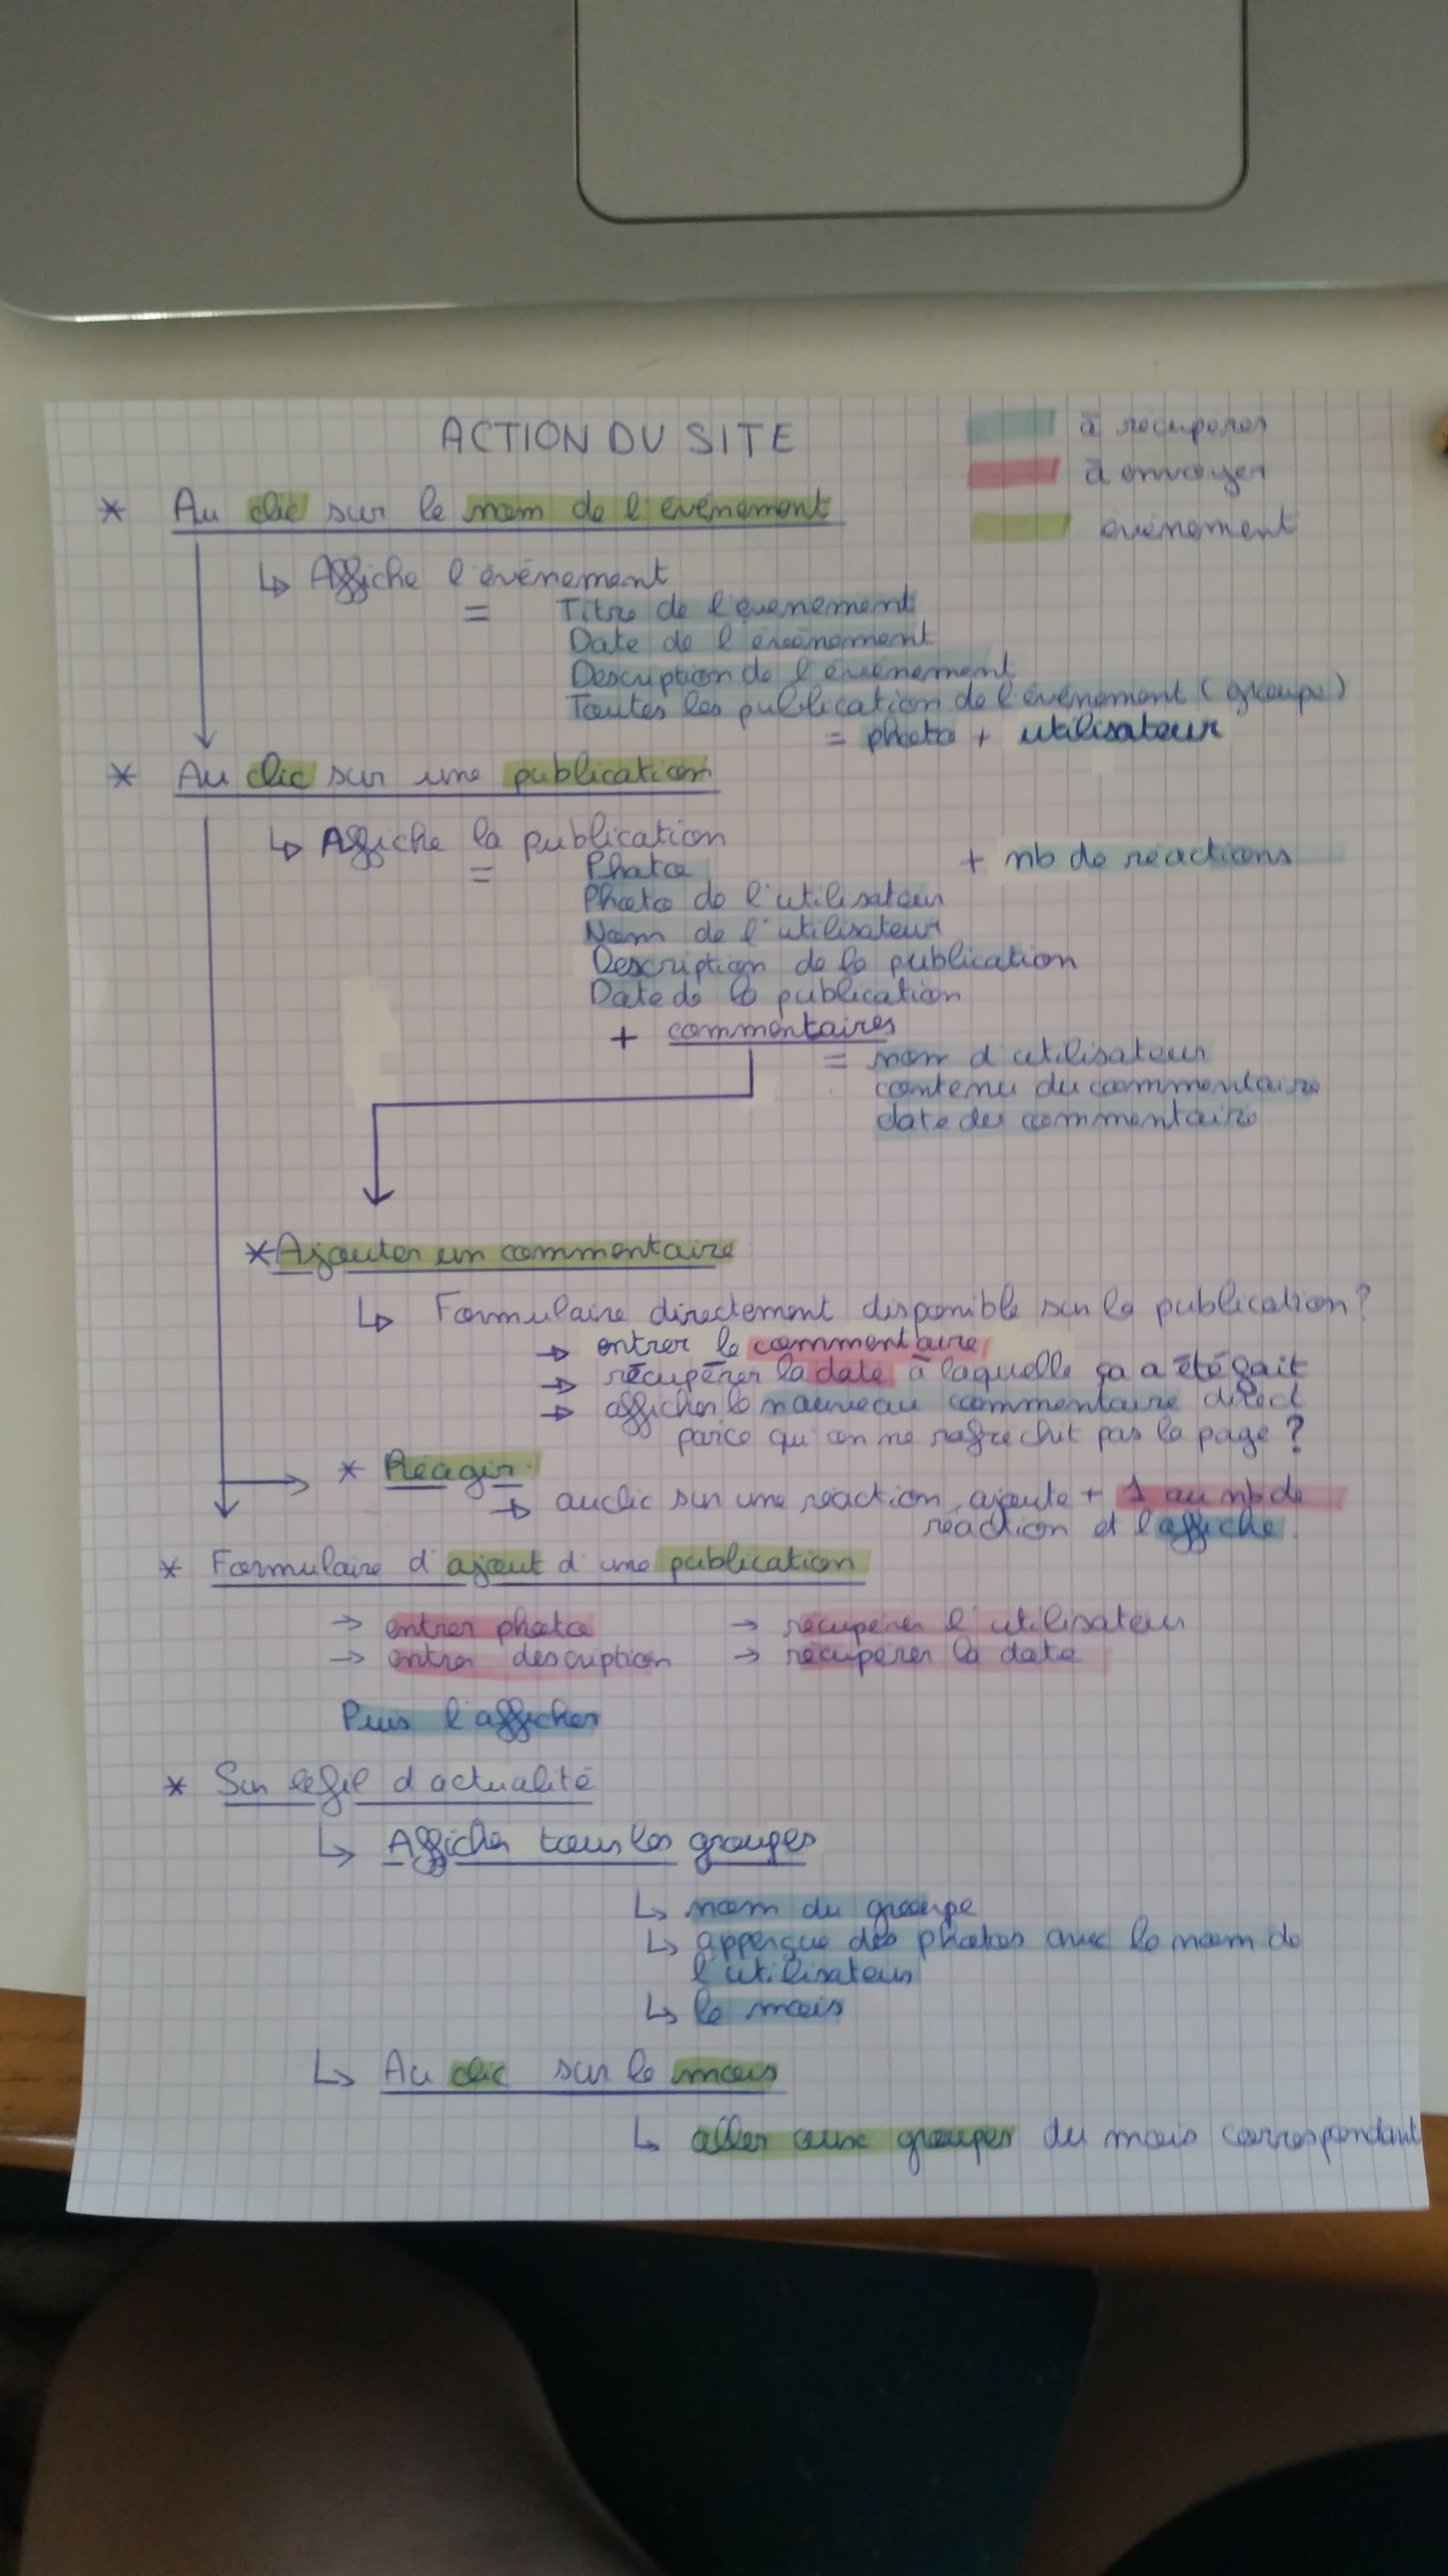 ACTION DU SITE
à récupérer
à envoyer
évènement
* Au clic sur le nom de l'évènement
↳ Affiche l'évènement
= Titre de l'évenement
Date de l'évènement
Description de l'évènement
Toutes les publication de l'évènement (groupe)
= photo + utilisateur
* Au clic sur une publication
↳ Affiche la publication
= Photo
+ nb de réactions
Photo de l'utilisateur
Nom de l'utilisateur
Description de la publication
Date de la publication
+ commentaires
= nom d'utilisateur
contenu du commentaire
date du commentaire
* Ajouter un commentaire
↳ Formulaire directement disponible sur la publication ?
→ entrer le commentaire
→ récupérer la date à laquelle ça a été fait
→ afficher le nouveau commentaire direct
parce qu'on ne rafrechit pas la page ?
* Réagir
→ au clic sur une réaction, ajoute + 1 au nb de
réaction et l'affiche.
* Formulaire d'ajout d'une publication
→ entrer photo → récupérer l'utilisateur
→ entrer description → récupérer la date
Puis l'afficher
* Sur le fil d'actualité
↳ Afficher tous les groupes
↳ nom du groupe
↳ apperçue des photos avec le nom de
l'utilisateur
↳ le mois
↳ Au clic sur le mois
↳ aller aux groupes du mois correspondant